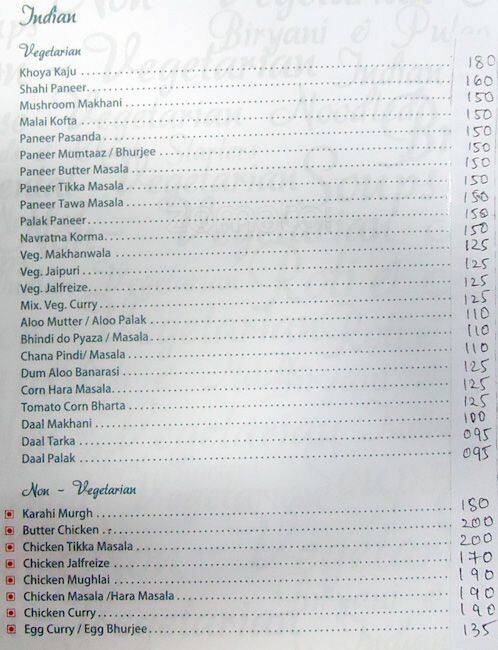 Indian
Vegetarian
Khoya Kaju 180
Shahi Paneer 160
Mushroom Makhani 150
Malai Kofta 150
Paneer Pasanda 150
Paneer Mumtaaz / Bhurjee 150
Paneer Butter Masala 150
Paneer Tikka Masala 150
Paneer Tawa Masala 150
Palak Paneer 150
Navratna Korma 150
Veg. Makhanwala 125
Veg. Jaipuri 125
Veg. Jalfreize 125
Mix. Veg. Curry 125
Aloo Mutter / Aloo Palak 110
Bhindi do Pyaza / Masala 110
Chana Pindi/ Masala 110
Dum Aloo Banarasi 125
Corn Hara Masala 125
Tomato Corn Bharta 125
Daal Makhani 100
Daal Tarka 095
Daal Palak 095
Non - Vegetarian
Karahi Murgh 180
Butter Chicken 200
Chicken Tikka Masala 200
Chicken Jalfreize 170
Chicken Mughlai 190
Chicken Masala /Hara Masala 190
Chicken Curry 190
Egg Curry / Egg Bhurjee 135